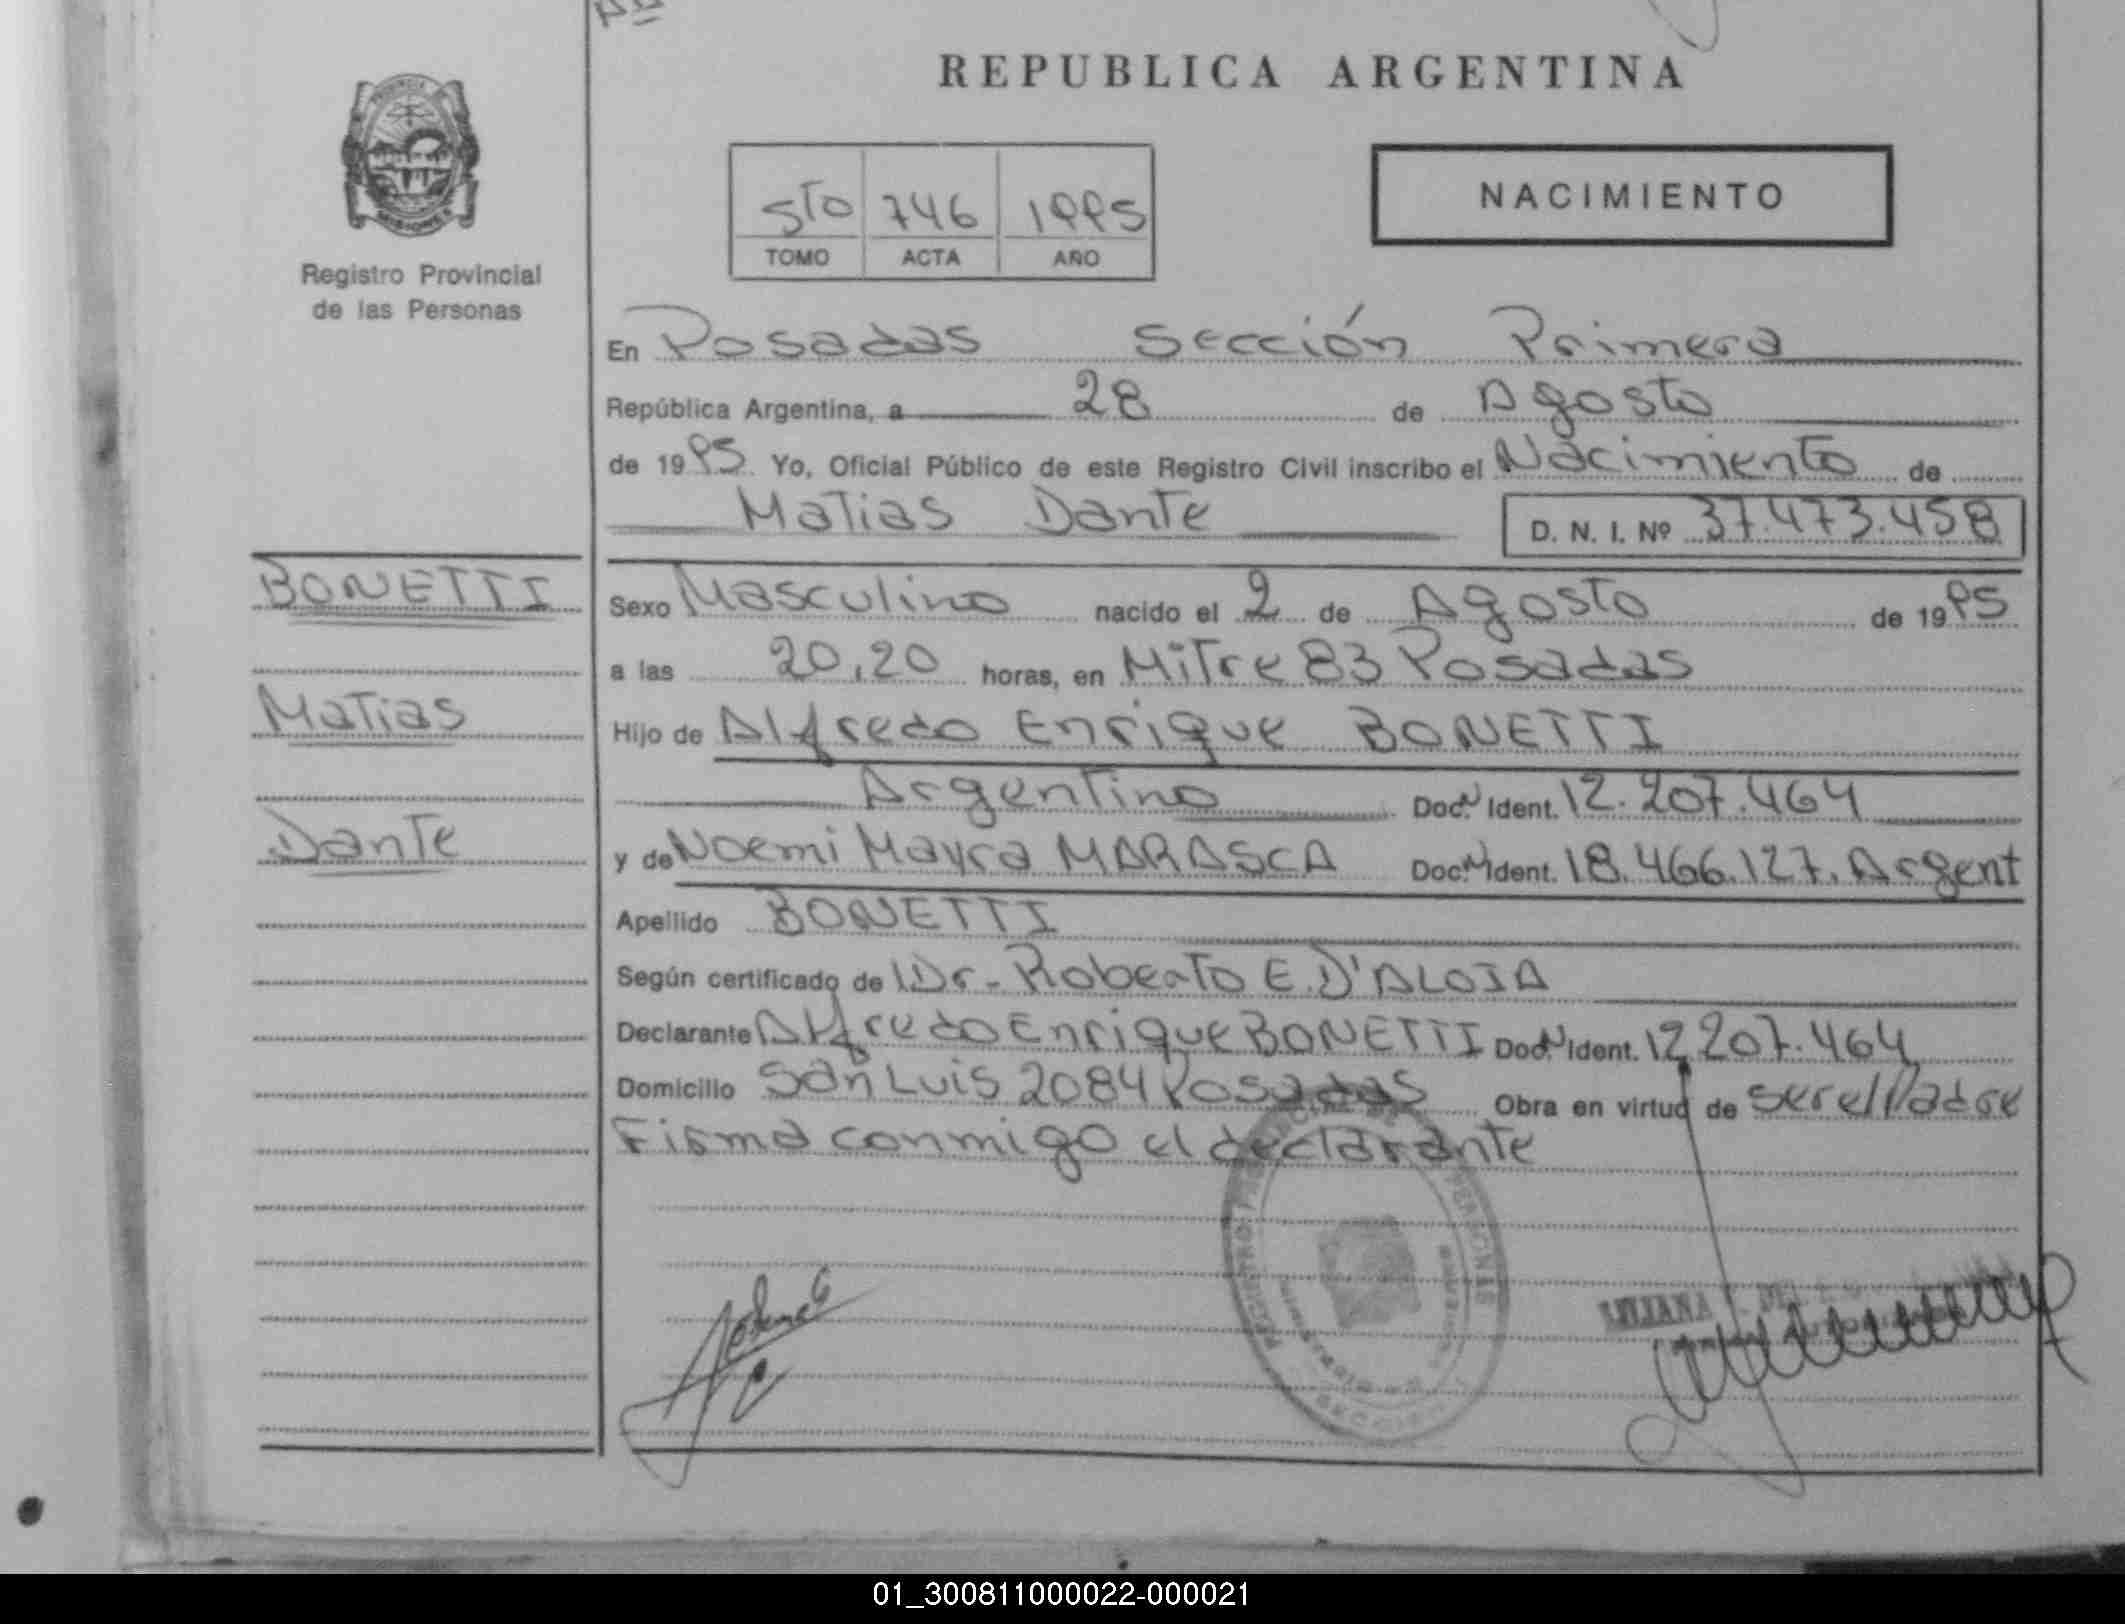 REPUBLICA ARGENTINA
PROVINCIA DE
MISIONES
Registro Provincial
de las Personas
5to 746 1995
TOMO ACTA AÑO
NACIMIENTO
En Posadas Sección Primera
República Argentina, a 28 de Agosto
de 1995 Yo, Oficial Público de este Registro Civil inscribo el Nacimiento de
Matias Dante D. N. I. Nº 37.473.458
BONETTI
Matias
Dante
Sexo Masculino nacido el 2 de Agosto de 1995
a las 20,20 horas, en Mitre 83 Posadas
Hijo de Alfredo Enrique BONETTI
Argentino Doc. N Ident. 12.207.464
y de Noemi Mayra MARASCA Doc. N Ident. 18.466.127. Argent
Apellido BONETTI
Según certificado de Dr. Roberto E. D'ALOIA
Declarante Alfredo Enrique BONETTI Doc. N Ident. 12.207.464
Domicilio San Luis 2084 Posadas Obra en virtud de ser el Padre
Firma conmigo el declarante
REGISTRO PROVINCIAL DE LAS PERSONAS
LILIANA
01_300811000022-000021